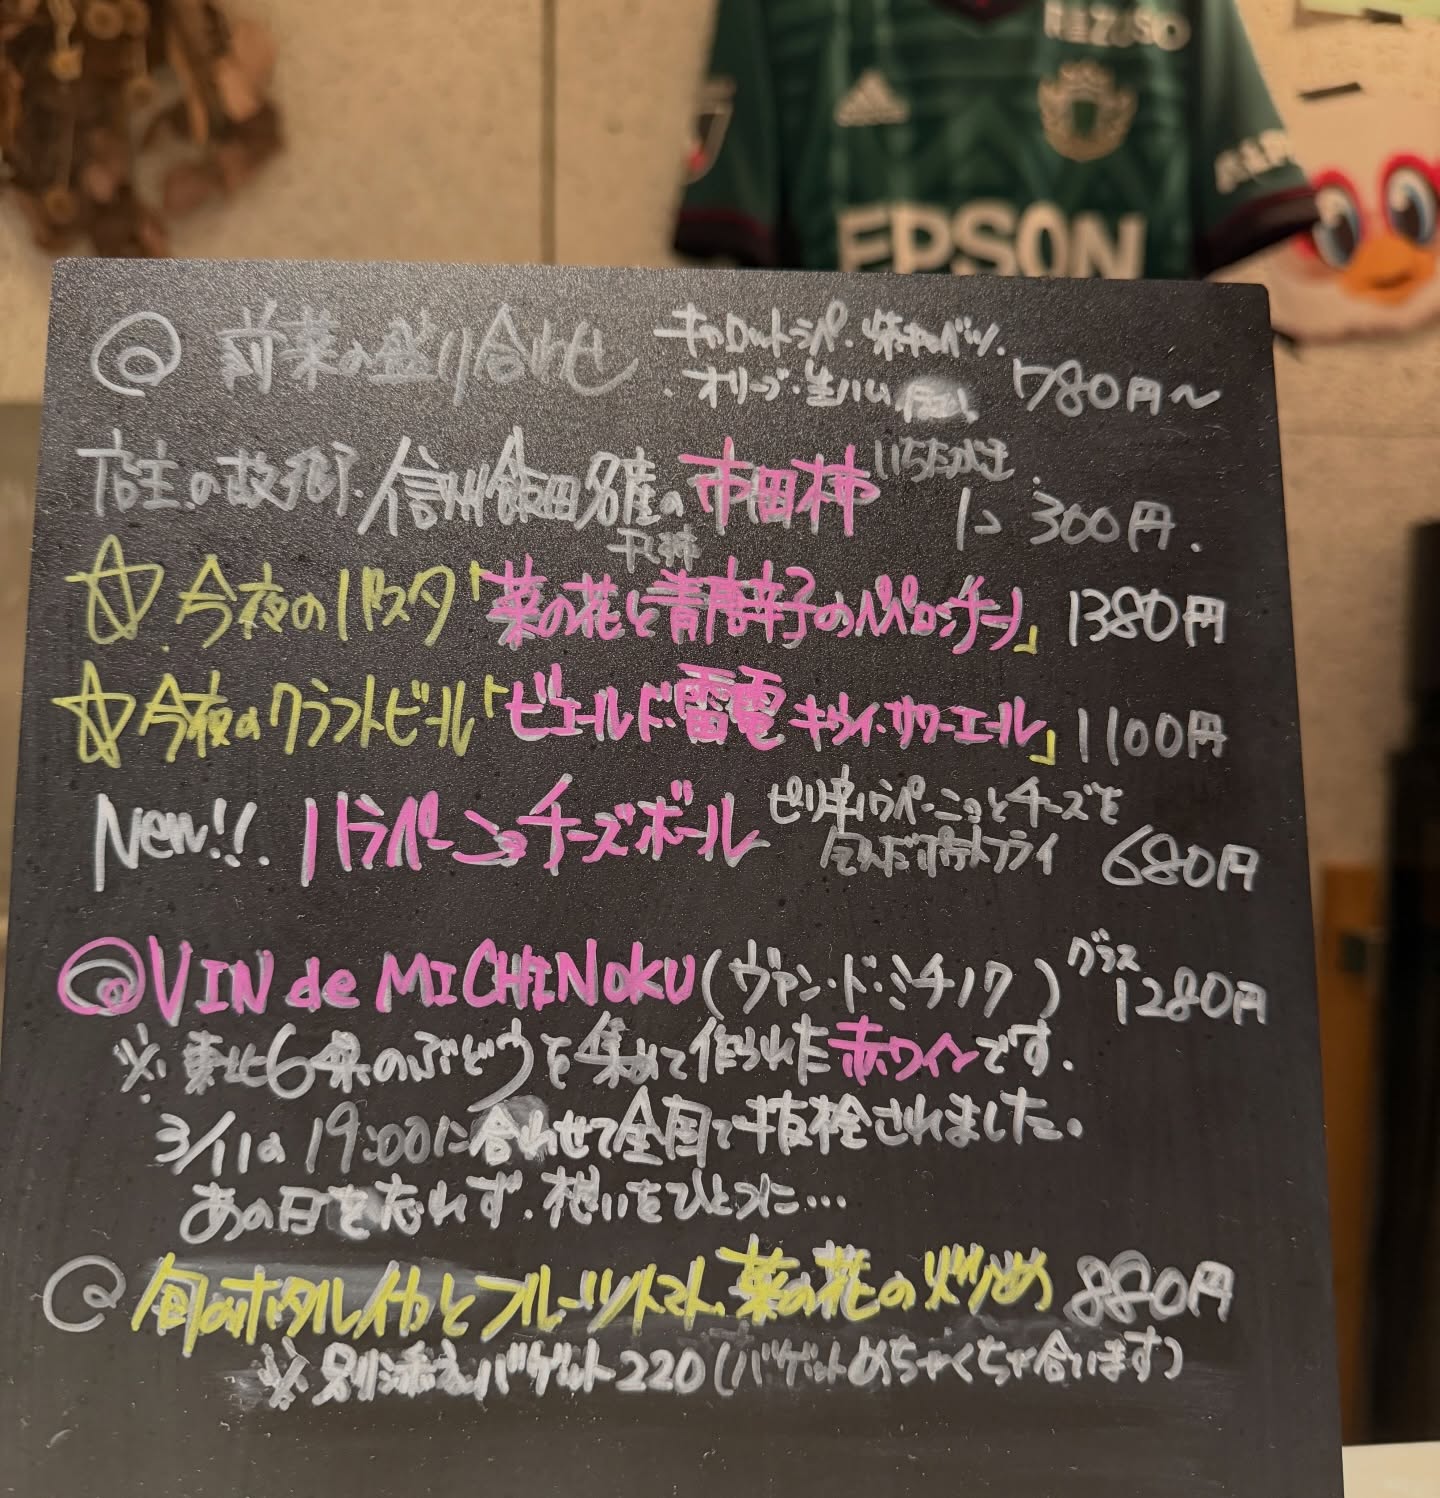 REZUSO
adidas
EPSON
◎ 前菜の盛り合わせ キャロットラペ・紫キャベツ・
・オリーブ・生ハム 780円～
店主の故郷、信州飯田名産の市田柿 いちだがき 1コ 300円.
干し柿
☆今夜のパスタ「菜の花と青唐辛子のペペロンチーノ」 1380円
☆今夜のクラフトビール「ビエールド・雷電 キウイ・サワーエール」 1100円
New!!. ハラペーニョチーズボール ピリ辛ハラペーニョとチーズを
包んだポテトフライ 680円
◎VIN de MICHINOKU (ヴァン・ド・ミチノク) グラス 1280円
※東北6県のぶどうを集めて作られた赤ワインです.
3/11の19:00に合わせて全国で抜栓されました。
あの日を忘れず、想いをひとつに…
◎旬のホタルイカとフルーツトマト、菜の花の炒め 880円
※別添えバゲット220(バゲットめちゃくちゃ合います)